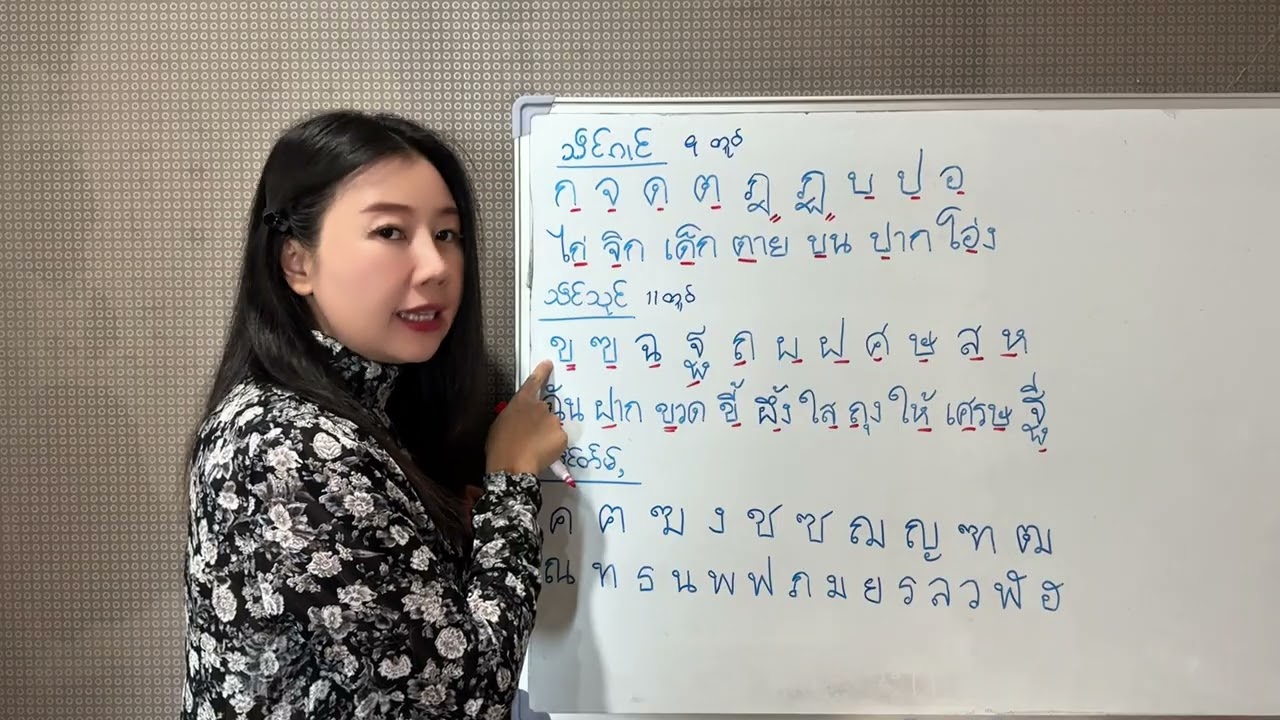 သဵင်ၵၢင် 9 တူဝ်
ก จ ด ต ฎ ฏ บ ป อ
ไก่ จิก เด็ก ตาย บน ปาก โอ่ง
သဵင်သုင် 11 တူဝ်
ข ฃ ฉ ฐ ถ ผ ฝ ศ ษ ส ห
ฉัน ฝาก ขวด ขี้ ผึ้ง ใส ถุง ให้ เศรษ ฐี
ค ฅ ฆ ง ช ซ ฌ ญ ฑ ฒ
ณ ท ธ น พ ฟ ภ ม ย ร ล ว ฬ ฮ